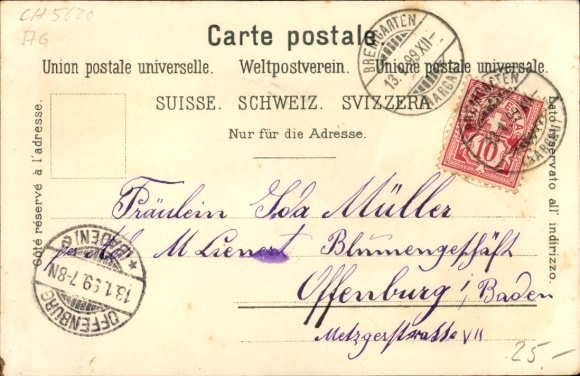 CH 5620
AG
Carte postale
Union postale universelle. Weltpostverein. Unione postale universale.
SUISSE. SCHWEIZ. SVIZZERA.
Nur für die Adresse.
Côté réservé à l'adresse.
Lato riservato all' indirizzo.
BREMGARTEN
13.I.99.XII-
(AARGAU)
10
Fräulein Ida Müller
M Lienert Blumengeschäft
Offenburg i/Baden
Metzgerstrasse VII
OFFENBURG
(BADEN)
13.1.99.7-8N
25.-